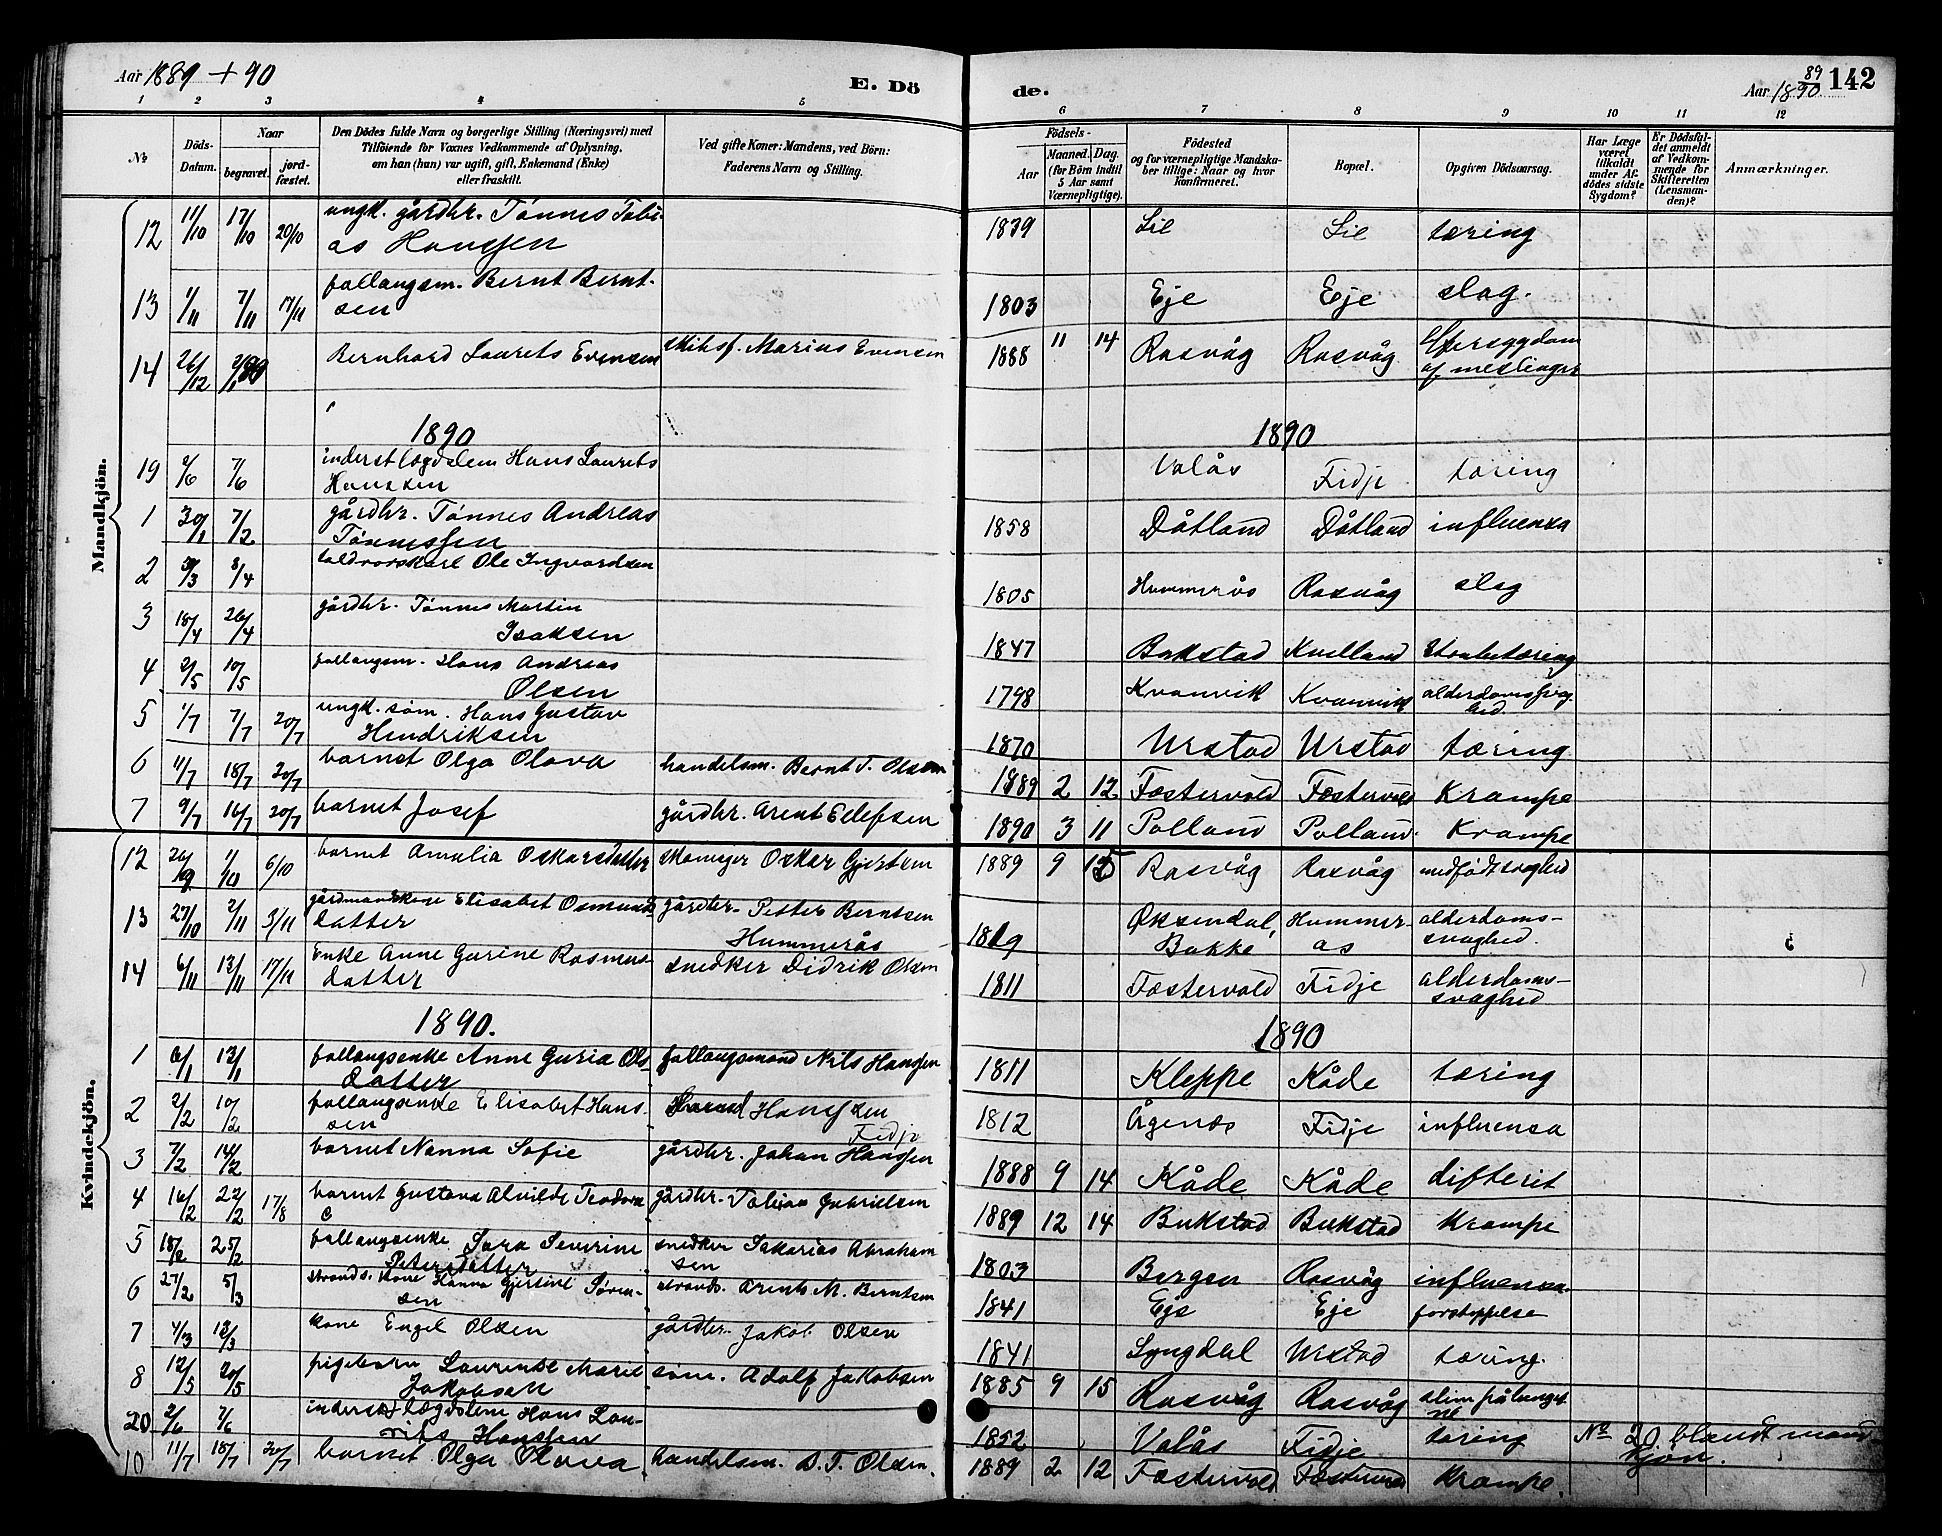 Aar 1889 + 90
E. Dö
de.
Aar 1890 89
142
1 2 3 4 5 6 7 8 9 10 11 12
No
Döds-Datum.
Naar
begravet.
jord-fæstet.
Den Dödes fulde Navn og borgerlige Stilling (Næringsvei) med
Tilföiende for Voxnes Vedkommende af Oplysning,
om han (hun) var ugift, gift, Enkemand (Enke)
eller fraskilt.
Ved gifte Koner: Mandens, ved Börn:
Faderens Navn og Stilling.
Födsels-
Aar
Maaned. Dag.
(for Börn indtil
5 Aar samt
Værnepligtige).
Födested
og for værnepligtige Mandska-
ber tillige: Naar og hvor
konfirmeret.
Bopæl.
Opgiven Dödsaarsag.
Har Læge
været
tilkaldt
under Af-
dödes sidste
Sygdom?
Er Dödsfal-
det anmeldt
af Vedkom-
mende for
Skifteretten
(Lensman-
den)?
Anmærkninger.
Mandkjön.
12 11/10 17/10 20/10 ungk. gårdbr. Tønnes Tobi-
as Hanssen 1839 Lie Lie tæring
13 1/11 7/11 17/11 follaugsm. Bernt Bernt-
sen 1803 Eje Eje slag.
14 26/12 2/1 90 Bernhard Laurets Evensen skibsf. Marius Evensen 1888 11 14 Rasvåg Rasvåg Eftersygdom
af meslinger
1890
1890
19 2/6 7/6 inderst lægdslem Hans Laurets
Hanssen Valås Fidje tæring
1 30/1 7/2 gårdbr. Tønnes Andreas
Tønnessen 1858 Dåtland Dåtland influensa
2 31/3 8/4 toldrorskarl Ole Ingvardsen 1805 Hummerås Rasvåg slag
3 18/4 26/4 gårdbr. Tønnes Martin
Isaksen 1847 Bukstad Kvelland Strubetæring
4 2/5 10/5 follaugsm. Hans Andreas
Olsen 1798 Kvanvik Kvanvik alderdomssvag-
hed.
5 1/7 7/7 20/7 ungk. søm. Hans Gustav
Hendriksen 1870 Urstad Urstad tæring
6 11/7 18/7 20/7 barnet Olga Olava handelsm. Bernt T. Olsen 1889 2 12 Fæstervold Fæstervold Krampe
7 9/7 16/7 20/7 barnet Josef gårdbr. Arent Eilefsen 1890 3 11 Polland Polland Krampe
Kvindekjön.
12 26/9 1/10 6/10 barnet Amalia Oskarsdatter skomager Oskar Gjertsen 1889 9 15 Rasvåg Rasvåg medfødt svaghed
13 27/10 2/11 3/11 gårdmandskone Elisabet Osmunds
datter gårdbr. Petter Berntsen
Hummerås 1819 Øksendal,
Bakke Hummer-
ås alderdoms-
svaghed.
14 6/11 13/11 17/11 Enke Anne Gurine Rasmus-
datter snedker Didrik Olsen 1811 Fæstervold Fidje alderdoms-
svaghed
1890.
1890
1 6/1 13/1 follaugsenke Anne Guria Ols-
datter follaugsmand Nils Hanssen 1811 Kleppe Kåde tæring
2 2/2 10/2 follaugsenke Elisabet Hans-
sen Hanssen
Fidje 1812 Ågenæs Fidje influensa
3 7/2 14/2 barnet Nanna Sofie gårdbr. Johan Hanssen 1888 9 14 Kåde Kåde difterit
4 16/2 22/2 17/8 barnet Gustava Alvilde Teodora gårdbr. Tobias Gabrielsen 1889 12 14 Bukstad Bukstad Krampe
5 18/2 25/2 follaugsenke Sara Severine
Petersdatter snedker Sakarias Abraham
sen 1803 Bergen Rasvåg influensa.
6 27/2 5/3 strands. kone Hanna Gjertine Søren-
sen strands. Arent M. Berntsen 1841 Eje Eje forstoppelse
7 4/3 13/3 kone Engel Olsen gårdbr. Jakob Olsen 1841 Lyngdal Urstad tæring.
8 12/5 20/5 pigebarn Laurense Marie
Jakobsen søm. Adolf Jakobsen 1885 9 15 Rasvåg Rasvåg slim på lunger
ne
20 2/6 7/6 inderst lægdslem Hans Lau-
rits Hanssen 1852 Valås Fidje tæring No 20. blandt mand
kjøn.
10 11/7 18/7 20/7 barnet Olga Olava handelsm. B. T. Olsen. 1889 2 12 Fæstervold Fæstervold Krampe.